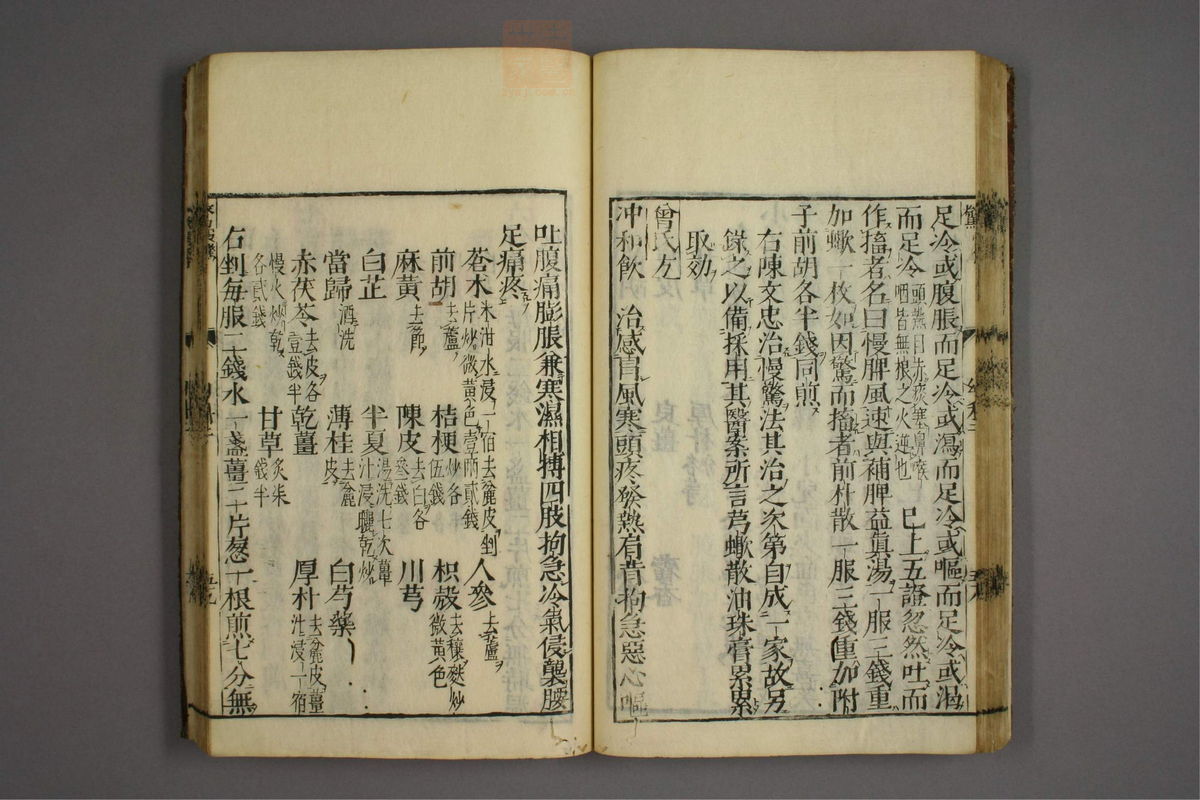 足冷或腹脹而足冷或渴而足冷或嘔而足冷或渴
而足冷頭熱目赤痰塞鼻喉咽皆無根之火逆也已上五證忽然吐而
作搐者名曰慢脾風速與補脾益真湯一服三錢重
加蠍一枚如因驚而搐者前朴散一服三錢重加附
子前胡各半錢同煎
右陳文忠治慢驚法其治之次第自成一家故另
錄之以備採用其醫案所言芎蠍散油珠膏累累
取効
曾氏方
沖和飲 治感冒風寒頭疼發熱肩背拘急惡心嘔
吐腹痛膨脹兼寒濕相搏四肢拘急冷氣侵襲腰
足痛疼
蒼朮米泔水浸一宿去麄皮剉片炒微黃色壹兩貳錢 人參去蘆
前胡去蘆 桔梗炒各伍錢 枳殼去穰麩炒微黃色
麻黃去節 陳皮去白各參錢 川芎
白芷 半夏湯洗七次薑汁浸曬乾炒
當歸酒洗 薄桂去麄皮 白芍藥
赤茯苓去皮各壹錢半 乾薑 厚朴去麄皮薑汁浸一宿
慢火炒乾各貳錢 甘草炙柒錢半
右剉每服二錢水一盞薑三片葱一根煎七分無